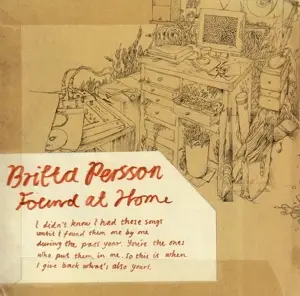 Britta Persson
Found at Home
I didn't know I had these songs
until I found them one by one
during the pass year. You're the ones
who put them in me. So this is when
I give back what's also yours.